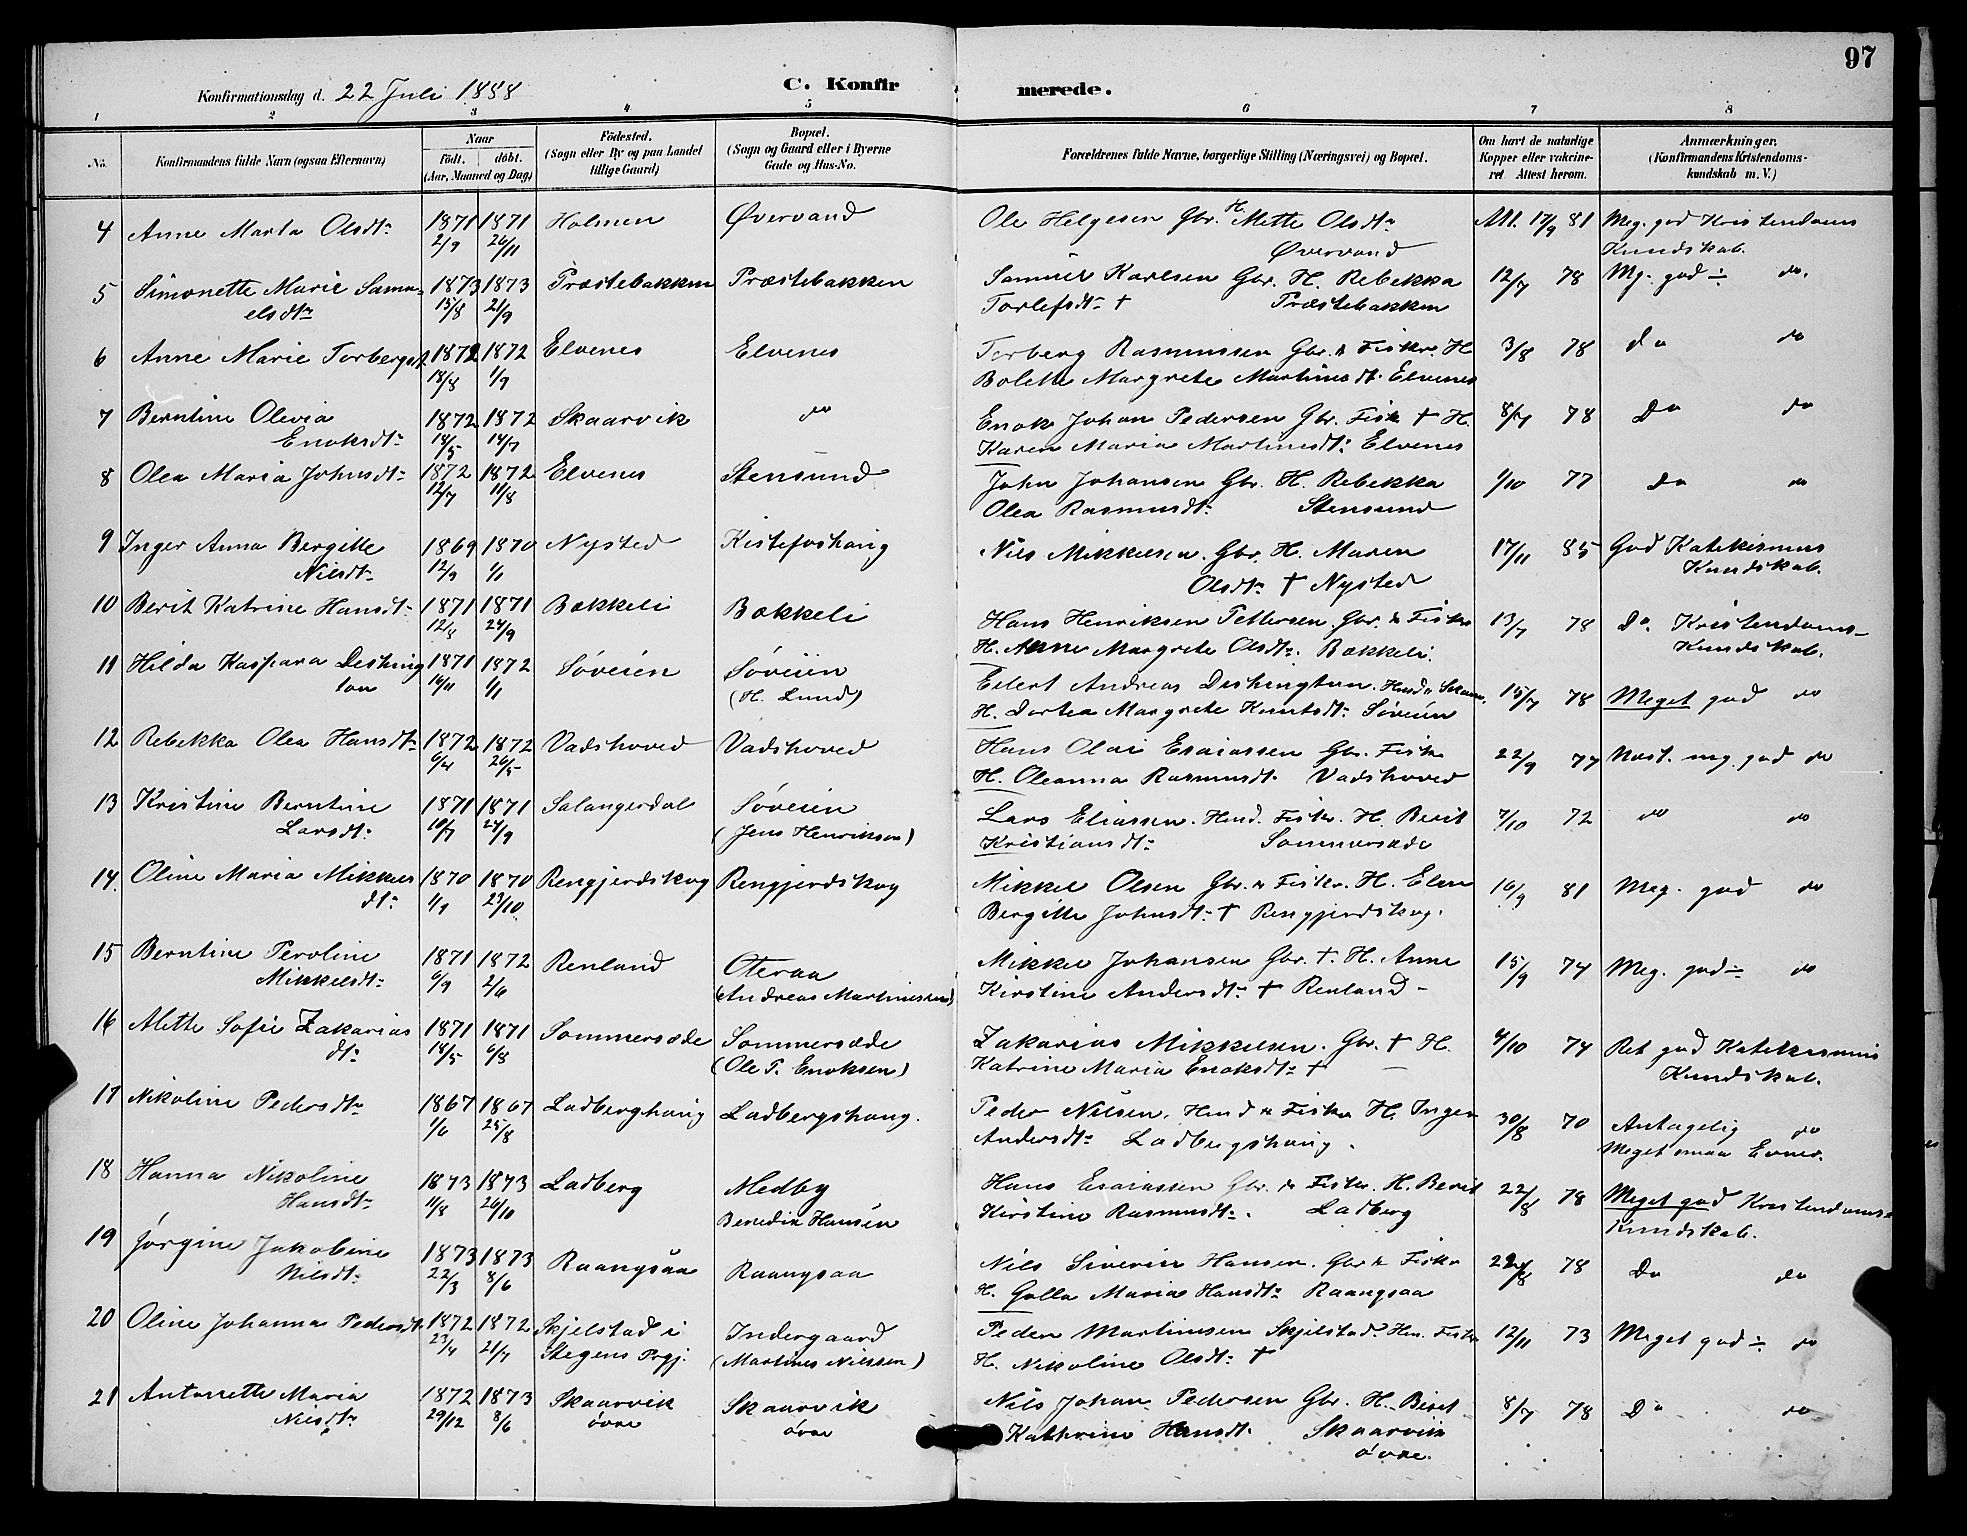 97
Konfirmationsdag d. 22 Juli 1888
C. Konfirmerede.
1 2 3 4 5 6 7 8
No. Konfirmandens fulde Navn (ogsaa Efternavn) Naar födt. döbt. (Aar, Maaned og Dag) Födested. (Sogn eller By og paa Landet tillige Gaard) Bopæl. (Sogn og Gaard eller i Byerne Gade og Hus-No. Forældrenes fulde Navne, borgerlige Stilling (Næringsvei) og Bopæl. Om havt de naturlige Kopper eller vakcineret Attest herom. Anmærkninger. (Konfirmandens Kristendomskundskab m. V.)
4 Anne Marta Olsdtr 1871 2/9 1871 26/11 Holmen Øvervand Ole Helgesen Gbr. H. Mette Olsdtr Øvervand Att. 17/9 81 Meg. god Kristendoms Kundskab.
5 Simonette Marie Samuelsdtr 1873 15/8 1873 21/9 Præstebakken Præstebakken Samuel Karlsen Gbr. H. Rebekka Torlefsdtr † Præstebakken 12/7 78 Mg. god ÷ do.
6 Anne Marie Torbergsd. 1872 18/8 1872 1/9 Elvenes Elvenes Torberg Rasmussen Gbr. & Fisker. H Bolette Margrete Martinsdt. Elvenes 3/8 78 do do
7 Berntine Olevia Enoksdtr 1872 18/5 1872 14/7 Skaarvik do Enok Johan Pedersen Gbr. Fisk † H. Karen Maria Martinsdtr Elvenes 8/7 78 Do do
8 Olea Maria Johnsdtr 1872 12/7 1872 11/8 Elvenes Stensund John Johansen Gbr. H. Rebekka Olea Rasmusdtr Stensund 1/10 77 Do do
9 Inger Anna Bergitte Nilsdtr 1869 12/9 1870 1/1 Nysted Kistefoshaug Nils Mikkelsen. Gbr. H. Maren Olsdtr † Nysted 17/11 85 God Katekismus Kundskab.
10 Berit Katrine Hansdtr 1871 12/8 1871 24/9 Bækkeli Bækkeli Hans Henriksen Pettersen. Gbr. & Fisker H. Anne Margrete Olsdtr. Bækkeli. 13/7 78 Do. Kristendoms- Kundskab.
11 Hilda Kaspara Deshington 1871 16/11 1872 1/1 Søveien Søveien (H. Lund) Eilert Andreas Deshington. H. Dortea Margrete Knutsdtr Søveien 15/7 78 Meget god do
12 Rebekka Olea Hansdtr 1872 6/4 1872 26/5 Vadshoved Vadshoved Hans Olai Esaiassen Gbr. Fisker H. Oleanna Rasmusdt. Vadshoved 22/9 77 Næst. mg. god do
13 Kristine Berntine Larsdtr 1871 10/7 1871 24/9 Salangerdal Søveien (Jens Henriksen) Lars Eliassen. Husd. Fisker. H. Berit Kristiansdtr Sommersæde 7/10 72 do do
14. Oline Maria Mikkelsdtr 1870 1/9 1870 23/10 Rengjerdskog Rengjerdskog Mikkel Olsen Gbr. & Fisker. H. Elen Bergitte Johnsdtr † Rengjerdskog. 16/9 81 Meg. god do
15 Berntine Peroline Mikkelsdtr 1871 6/9 1872 2/6 Renland Oteraa (Andreas Martinussen) Mikkel Johansen Gbr. †. H. Anne Kirstine Andersdtr † Renland - 15/9 74 Meg. god ÷ do
16 Mette Sofie Zakariasdtr 1871 18/5 1871 6/8 Sommersæde Sommersæde (Ole P. Enoksen) Zakarias Mikkelsen. Gbr. † H. Katrine Maria Enoksdtr † — 4/10 74 Ret god Katekismus Kundskab.
17 Nikoline Pedersdtr 1867 1/6 1867 25/8 Ladberghaug Ladbergshaug. Peder Nilsen. Husd & Fisker H. Inger Andersdtr Ladbergshaug. 30/8 70 Antagelig do Meget smaa Evner.
18 Hanna Nikoline Hansdtr 1873 11/8 1873 26/10 Ladberg Medby Benedik Hansen Hans Esaiassen Gbr. & Fisker. H. Berit Kirstine Rasmusdtr. Ladberg 22/8 78 Meget god Kristendoms- Kundskab.
19 Jørgine Jakobine Nilsdtr 1873 22/3 1873 8/6 Raangsaa Raangsaa Nils Siverin Hansen. Gbr & Fisker H. Golla Maria Hansdtr Raangsaa 22/8 78 Do do
20 Oline Johanna Pedersdt. 1872 23/4 1872 21/7 Skjelstad i Stegens Prgj. Indergaard (Martines Nielsen) Peder Martinsen Skjelstad. Hus. Fisker H. Nikoline Olsdtr † 12/11 73 Meget god ÷ do
21 Antonette Maria Nilsdtr 1872 29/12 1873 8/6 Skaarvik øvre Skaarvik øvre Nils Johan Pedersen Gbr. H. Berit Kathrine Hansdt. Skaarvik øvre. 8/7 78 Do do